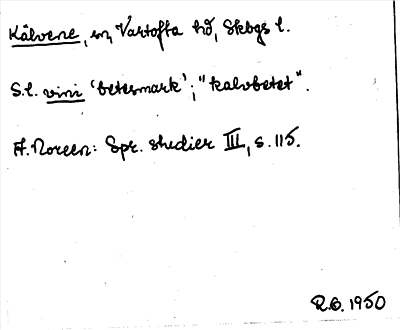 Kälvene, sn, Vartofta hd, Skbgs l.
S.l. vini 'betesmark'; "kalvbetet".
A. Noreen: Spr. studier III, s. 115.
R.G. 1950